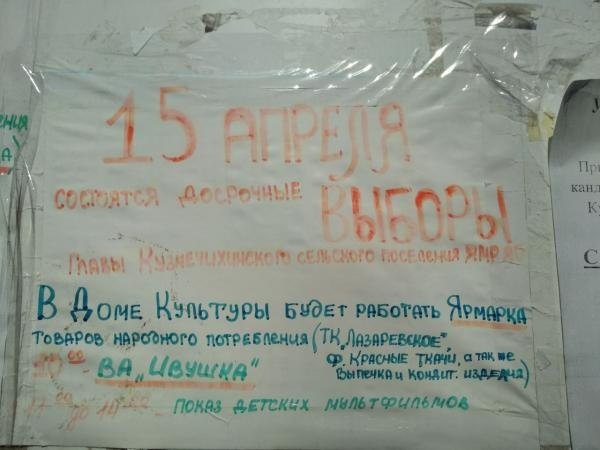 15 АПРЕЛЯ
СОСТОЯТСЯ ДОСРОЧНЫЕ ВЫБОРЫ
ГЛАВЫ КУЗНЕЧИХИНСКОГО СЕЛЬСКОГО ПОСЕЛЕНИЯ
В ДОМЕ КУЛЬТУРЫ БУДЕТ РАБОТАТЬ ЯРМАРКА
ТОВАРОВ НАРОДНОГО ПОТРЕБЛЕНИЯ (ТК „ЛАЗАРЕВСКОЕ",
Ф. КРАСНЫЕ ТКАЧИ, А ТАК ЖЕ
ВЫПЕЧКА И КОНДИТ. ИЗДЕЛИЯ)
10 00 - ВА „ИВУШКА"
ПОКАЗ ДЕТСКИХ МУЛЬТФИЛЬМОВ